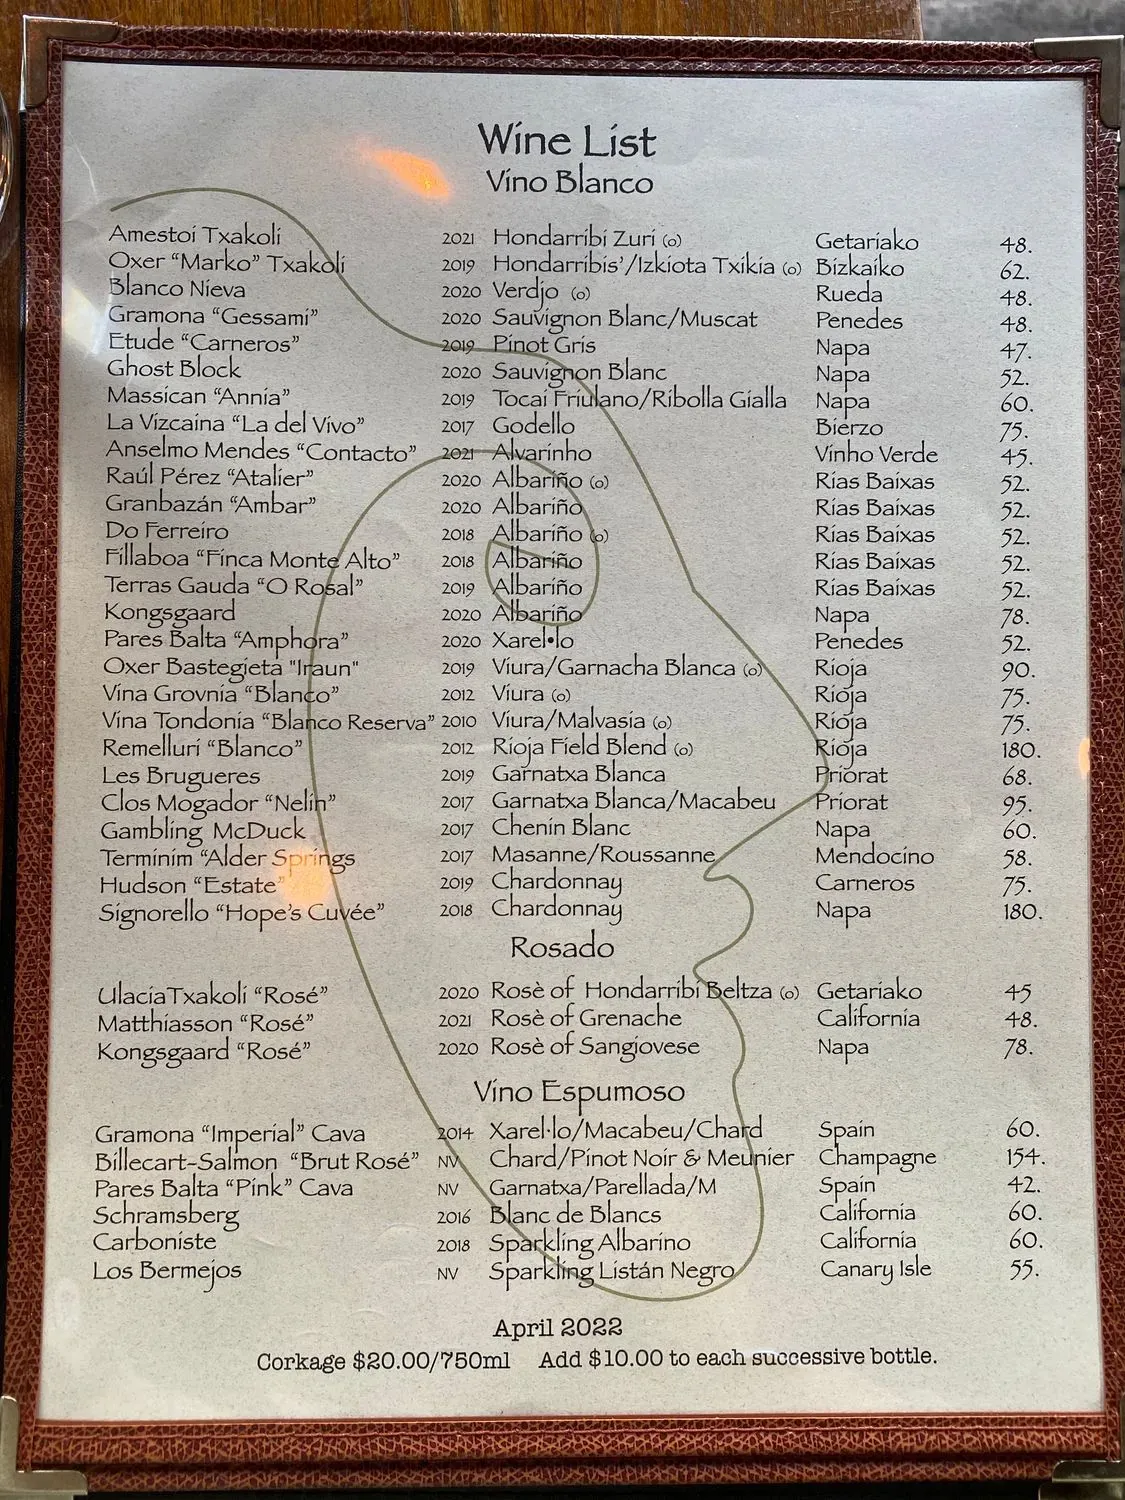 Wine List
Vino Blanco
Amestoi Txakoli 2021 Hondarribi Zuri (o) Getariako 48.
Oxer “Marko” Txakoli 2019 Hondarribis’/Izkiota Txikia (o) Bizkaiko 62.
Blanco Nieva 2020 Verdjo (o) Rueda 48.
Gramona “Gessami” 2020 Sauvignon Blanc/Muscat Penedes 48.
Etude “Carneros” 2019 Pinot Gris Napa 47.
Ghost Block 2020 Sauvignon Blanc Napa 52.
Massican “Annia” 2019 Tocai Friulano/Ribolla Gialla Napa 60.
La Vizcaina “La del Vivo” 2017 Godello Bierzo 75.
Anselmo Mendes “Contacto” 2021 Alvarinho Vinho Verde 45.
Raúl Pérez “Atalier” 2020 Albariño (o) Rías Baixas 52.
Granbazán “Ambar” 2020 Albariño Rías Baixas 52.
Do Ferreiro 2018 Albariño (o) Rías Baixas 52.
Fillaboa “Finca Monte Alto” 2018 Albariño Rías Baixas 52.
Terras Gauda “O Rosal” 2019 Albariño Rías Baixas 52.
Kongsgaard 2020 Albariño Napa 78.
Pares Balta “Amphora” 2020 Xarel•lo Penedes 52.
Oxer Bastegieta "Iraun" 2019 Viura/Garnacha Blanca (o) Rioja 90.
Vina Grovnia “Blanco” 2012 Viura (o) Rioja 75.
Vina Tondonia “Blanco Reserva” 2010 Viura/Malvasia (o) Rioja 75.
Remelluri “Blanco” 2012 Rioja Field Blend (o) Rioja 180.
Les Brugueres 2019 Garnatxa Blanca Priorat 68.
Clos Mogador “Nelin” 2017 Garnatxa Blanca/Macabeu Priorat 95.
Gambling McDuck 2017 Chenin Blanc Napa 60.
Terminim “Alder Springs 2017 Masanne/Roussanne Mendocino 58.
Hudson “Estate” 2019 Chardonnay Carneros 75.
Signorello “Hope’s Cuvée” 2018 Chardonnay Napa 180.
Rosado
UlaciaTxakoli “Rosé” 2020 Rosè of Hondarribi Beltza (o) Getariako 45
Matthiasson “Rosé” 2021 Rosè of Grenache California 48.
Kongsgaard “Rosé” 2020 Rosè of Sangiovese Napa 78.
Vino Espumoso
Gramona “Imperial” Cava 2014 Xarel·lo/Macabeu/Chard Spain 60.
Billecart-Salmon “Brut Rosé” NV Chard/Pinot Noir & Meunier Champagne 154.
Pares Balta “Pink” Cava NV Garnatxa/Parellada/M Spain 42.
Schramsberg 2016 Blanc de Blancs California 60.
Carboniste 2018 Sparkling Albarino California 60.
Los Bermejos NV Sparkling Listán Negro Canary Isle 55.
April 2022
Corkage $20.00/750ml Add $10.00 to each successive bottle.